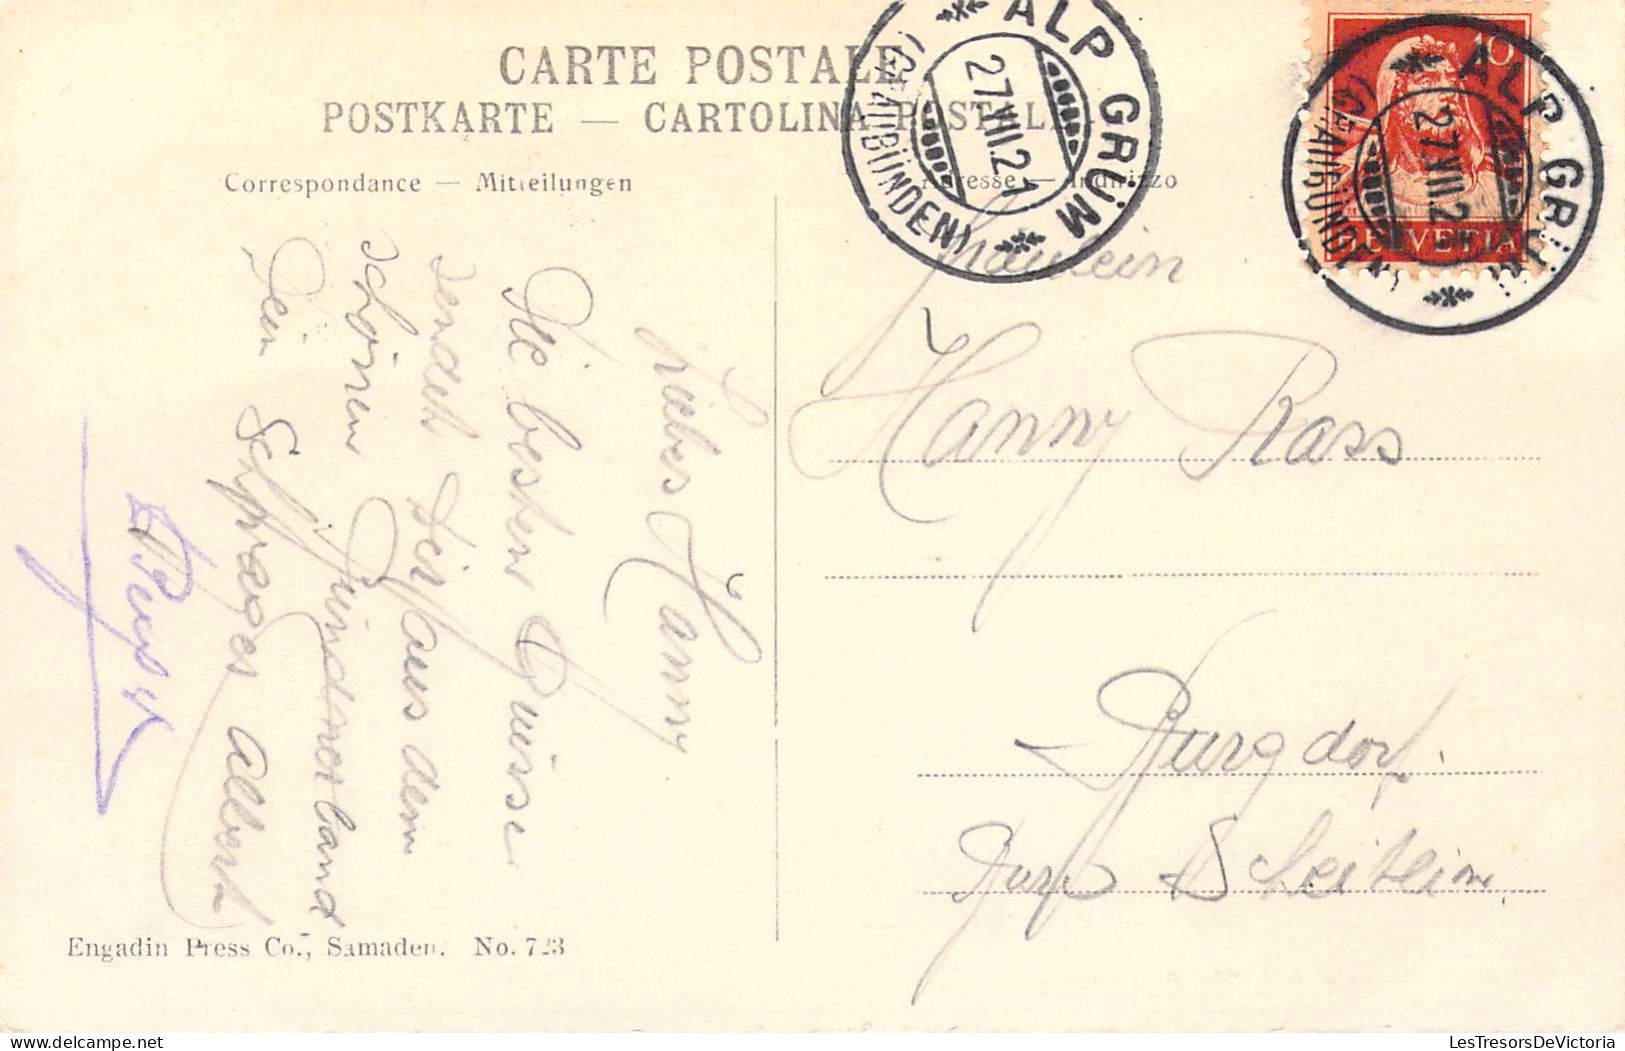 CARTE POSTALE
POSTKARTE — CARTOLINA POSTALE
Correspondance — Mitteilungen
Adresse — Indirizzo
ALP GRÜM
27.VIII.21
(GRAUBÜNDEN)
ALP GRÜM
27.VIII.21
(GRAUBÜNDEN)
10
HELVETIA
Liebes Hanny
Die besten Grüsse
sendet Dir aus dem
schönen Bündnerland
Dein Schwager Albert
Fräulein
Hanny Rass
Burgdorf.
Scheitlin
Engadin Press Co., Samaden. No. 723
LesTresorsDeVictoria.com